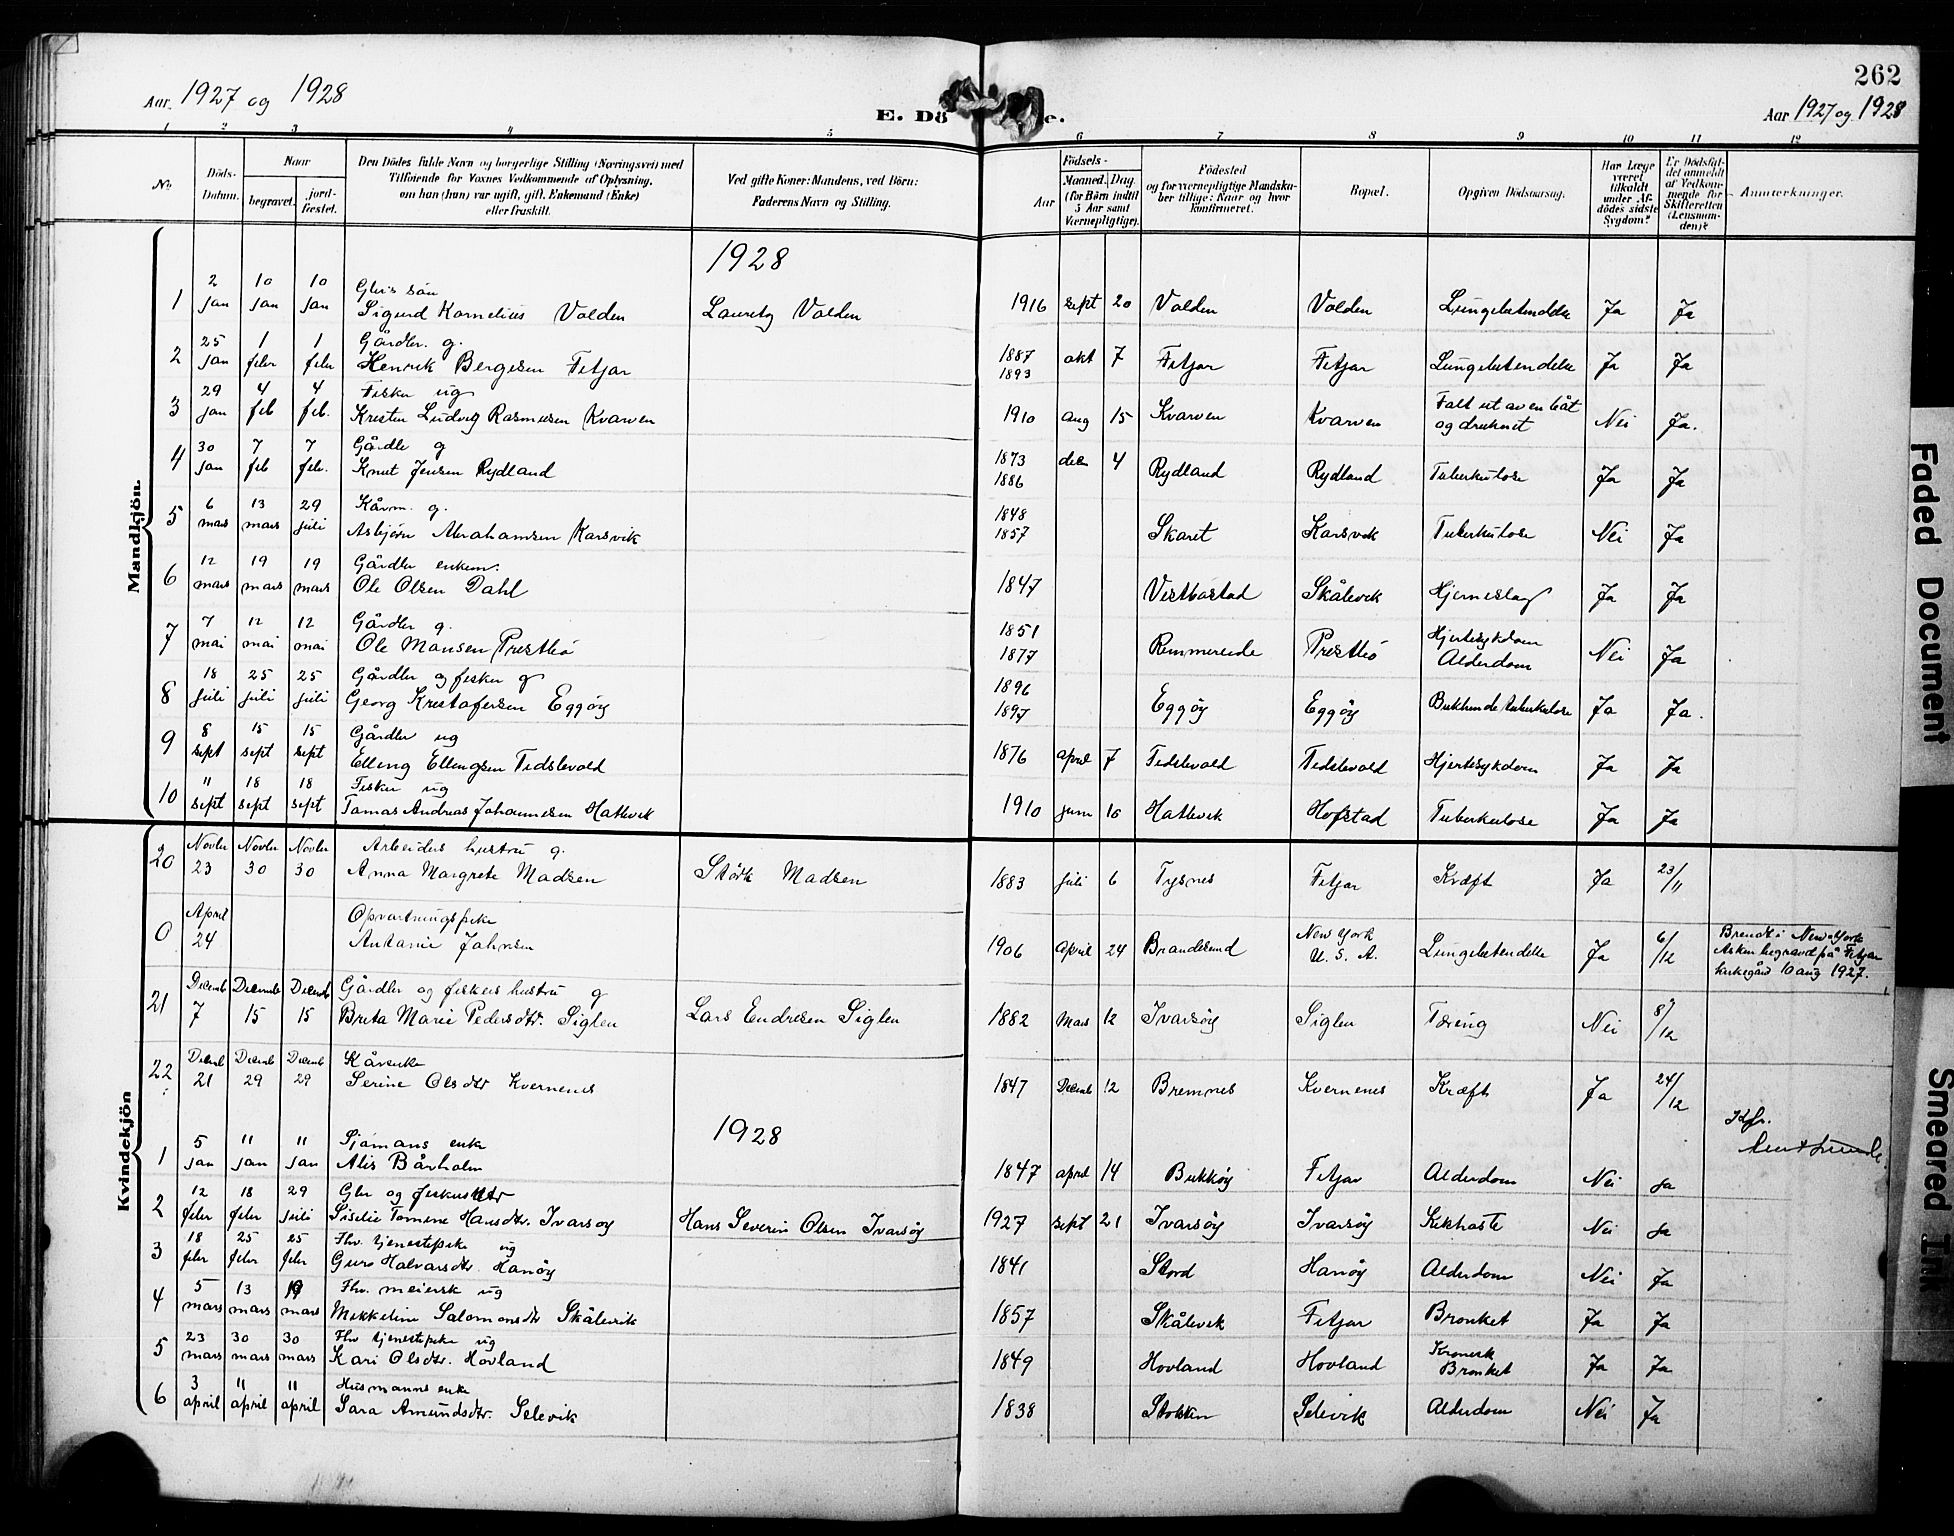 262
Aar 1927 og 1928
E. Dö
e.
Aar 1927 og 1928
1 2 3 4 5 6 7 8 9 10 11 12
No.
Döds-Datum.
Naar
begravet.
jord-fæstet.
Den Dödes fulde Navn og borgerlige Stilling (Næringsvei) med
Tilföiende for Voxnes Vedkommende af Oplysning,
om han (hun) var ugift, gift, Enkemand (Enke)
eller fraskilt.
Ved gifte Koner: Mandens, ved Börn:
Faderens Navn og Stilling.
Födsels-
Aar
Maaned. Dag
(for Börn indtil
5 Aar samt
Værnepligtige).
Födested
og for værnepligtige Mandska-
ber tillige: Naar og hvor
konfirmeret.
Bopæl.
Opgiven Dödsaarsag.
Har Læge
været
tilkaldt
under Af-
dödes sidste
Sygdom?
Er Dödsfal-
det anmeldt
af Vedkom-
mende for
Skifteretten
(Lensman-
den)?
Anmærkninger.
Mandkjön.
1928
1 2 jan 10 jan 10 jan Gbr's sön
Sigurd Kornelius Valden Lauritz Valden 1916 sept 20 Valden Valden Lungebetendelse Ja Ja
2 25 jan 1 febr 1 febr Gårdbr. g.
Henrik Bergesen Fitjar 1887 1893 okt 7 Fitjar Fitjar Lungebetendelse Ja Ja
3 29 jan 4 feb 4 feb. Fisker ug
Kristen Ludvig Rasmusen Kvarven 1910 aug 15 Kvarven Kvarven Falt ut av en båt
og druknet Nei Ja.
4 30 jan 7 feb 7 feb. Gårdbr g
Knut Jensen Rydland 1873 1886 des 4 Rydland Rydland Tuberkulose Ja Ja
5 6 mars 13 mars 29 juli Kårm. g.
Asbjörn Abrahamsen Karsvik 1848 1857 Skaret Karsvik Tuberkulose Nei Ja
6 12 mars 19 mars 19 mars Gårdbr enkem.
Ole Olsen Dahl 1847 Vestbøstad Skålevik Hjerneslag Ja Ja
7 7 mai 12 mai 12 mai Gårdbr g.
Ole Monsen Prestbö 1851 1877 Rimmereide Prestbö Hjertesykdom
Alderdom Nei Ja
8 18 juli 25 juli 25 juli Gårdbr og fisker g
Georg Kristofersen Eggöy 1896 1897 Eggöy Eggöy Bukhindetuberkulose Ja Ja.
9 8 sept 15 sept 15 sept Gårdbr ug
Elling Ellingsen Tidslevold 1876 april 7 Tidslevold Tidslevold Hjertesykdom Ja Ja
10 11 sept 18 sept 18 sept Fisker ug
Tomas Andreas Johannesen Hatlevik 1910 juni 16 Hatlevik Hofstad Tuberkulose Ja Ja
Kvindekjön
20 Novbr 23 Novbr 30 Novbr 30 Arbeiders hustru g.
Anna Margrete Madsen Störk Madsen 1883 juli 6 Tysnes Fitjar Kræft Ja 23/11
0 April 24 Opvartningspike
Antonie Johnsen 1906 April 24 Brandesund New York
U. S. A. Lungebetendelse Ja 6/12 Brendt i New-York
Asken begravd på Fitjar
kirkegård 10 aug 1927.
21 Decemb 7 Decemb 15 Decemb 15 Gårdbr og fiskers hustru g
Brita Marie Pedersdtr. Siglen Lars Endresen Siglen 1882 Mars 12 Ivarsöy Siglen Tæring Nei 8/12
22 Decemb 21 Decemb 29 Decemb 29 Kårenke
Serine Olsdtr Kvernenes 1847 Decemb 12 Bremnes Kvernenes Kræft Ja 24/12
1928
Kfr.
1 5 jan 11 jan 11 jan Sjömans enke
Alis Bårholm 1847 april 14 Bukköy Fitjar Alderdom Nei Ja
2 12 febr 18 febr 29 juli Gbr og fiskers dtr
Siselie Tomine Hansdtr. Ivarsöy Hans Severin Olsen Ivarsöy 1927 sept 21 Ivarsöy Ivarsöy Kikhoste Nei Ja
3 18 febr 25 febr 25 febr Fhv. tjenestepike ug
Guro Halvarsdtr. Hanöy 1841 Stord Hanöy Alderdom Nei Ja
4 5 mars 13 mars mars Fhv. meiersk ug
Mikkeline Salomonsdtr Skålevik 1857 Skålevik Fitjar Bronkit Ja Ja
5 23 mars 30 mars 30 mars Fhv tjenestepike ug
Kari Olsdtr. Hovland 1849 Hovland Hovland Kronisk
Bronkit Ja Ja
6 3 april 11 april 11 april Husmanns enke
Sara Amundsdtr. Selevik 1838 Stokken Selevik Alderdom Nei Ja
Faded Document
Smeared Ink